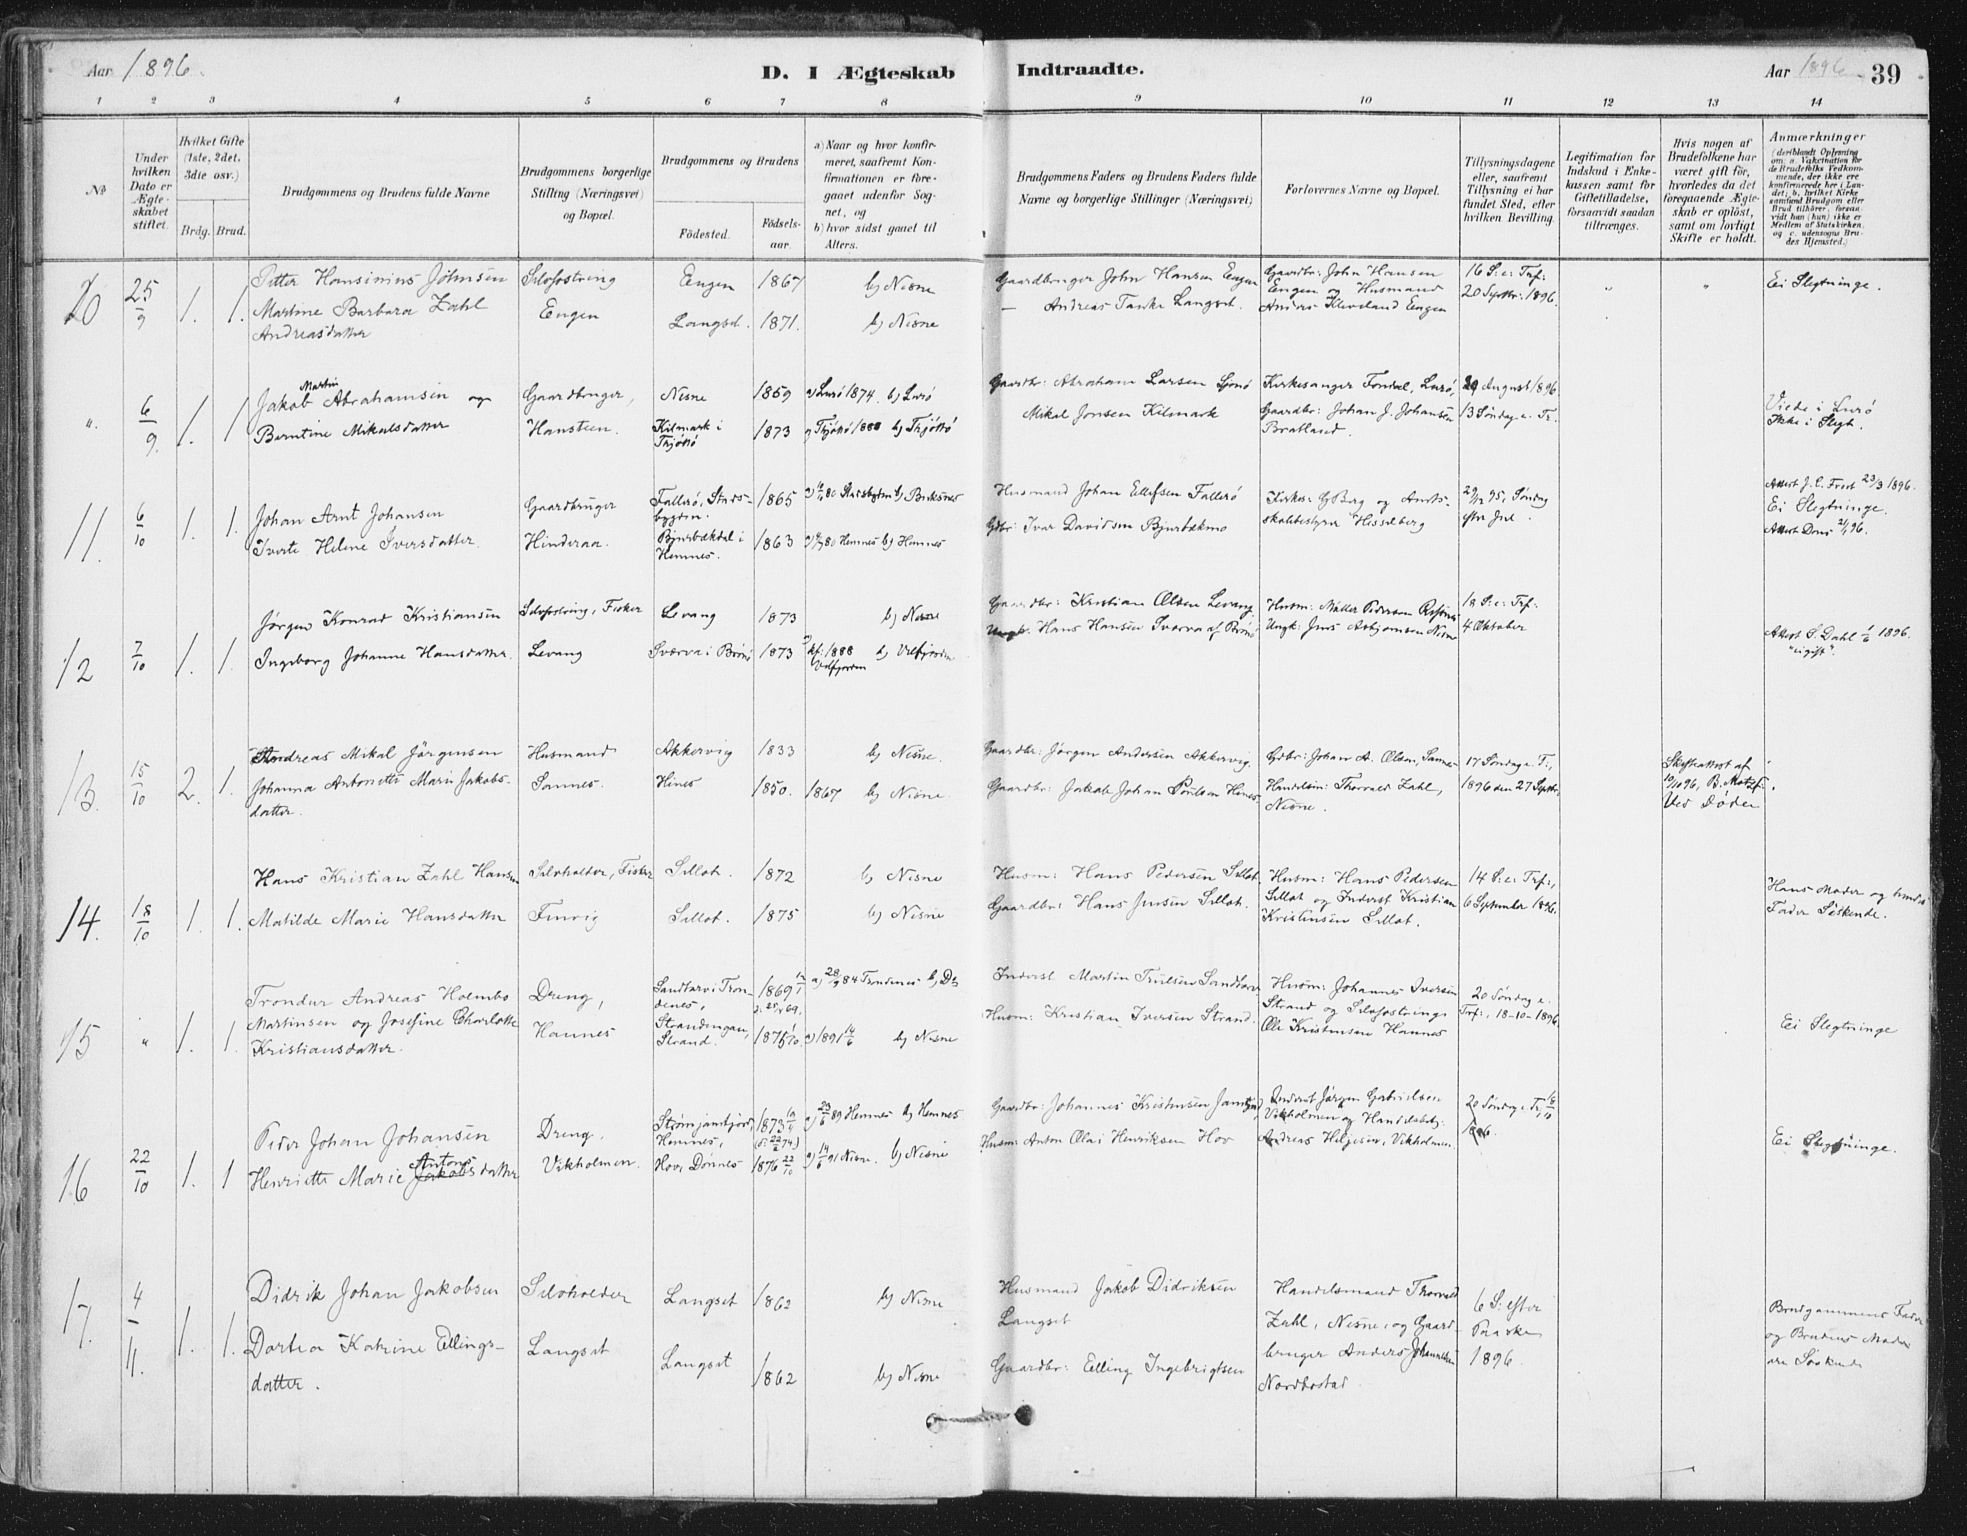 Aar 1896.
D. I Ægteskab Indtraadte.
Aar 1896. 39
1 2 3 4 5 6 7 8 9 10 11 12 13 14
No
Under hvilken Dato er Ægteskabet stiftet.
Hvilket Gifte (1ste, 2det. 3die osv.)
Brdg. Brud.
Brudgommens og Brudens fulde Navne
Brudgommens borgerlige Stilling (Næringsvei) og Bopæl.
Brudgommens og Brudens
Födested. Födselsaar.
a) Naar og hvor konfirmeret, saafremt Konfirmationen er foregaaet udenfor Sognet, og
b) hvor sidst gaaet til Alters.
Brudgommens Faders og Brudens Faders fulde Navne og borgerlige Stillinger (Næringsvei)
Forlovernes Navne og Bopæl.
Tillysningsdagene eller, saafremt Tillysning ei har fundet Sted, efter hvilken Bevilling.
Legitimation for Indskud i Enkekassen samt for Giftetilladelse, forsaavidt saadan tiltrænges.
Hvis nogen af Brudefolkene har været gift før, hvorledes da det foregaaende Ægteskab er opløst, samt om lovligt Skifte er holdt.
Anmærkninger (deriblandt Oplysning om: a. Vakcination for de Brudefolks Vedkommende, der ikke ere konfirmerede her i Landet; b. hvilket Kirkesamfund Brudgom eller Brud tilhörer, forsaavidt han (hun) ikke er Medlem af Statskirken, og c. udensogns Brudes Hjemsted.)
10 25/9 1. 1. Petter Hansinius Johnsen Selvfostring Eengen 1867 b) Nesne Gaardbruger John Hansen Eengen Gaardbr: John Hansen 16 S: e: Tref: " " Ei Slegtninge.
Martine Barbara Zahl Eengen Langset. 1871. b) Nesne — Andreas Tanke Langset. Eengen og Husmand 20 Septbr: 1896.
Andreasdatter Anders Kleveland Eengen
" 6/9 1. 1 Jakob Martin Abrahamsen og Gaardbruger, Nesne 1859 a) Lurø 1874. b) Lurø Gaardbr: Abraham Larsen Kirkesanger Lurø, August 1896 Viede i Lurø
Berntine Mikalsdatter Hansteen. Kilmark i Thjøttø 1873 a) Thjøttø 1888 b) Thjøttø Mikal Jonsen Kilmark Gaardbr: Johan J. Johansen Bratland. 13 Søndag e. Tr. Ikke i Slegt.
11. 6/10 1. 1. Johan Arnt Johansen Gaardbruger Fallerø, Stadsbygden. 1865 80 Stadsbygden b) Husmand Johan Ellefsen Fallerø Kirkes: G Berg og Amts- 29/12 95, Søndag 23/3 1896.
Iverte Helene Iversdatter. Hinderaa. Bjurbækdal i Hemnes. 1863 80 Hemnes b) Hemnes Gdbr: Ivar Davidsen Bjurbækmo skolebestyrer Hesselberg efter Jul. Ei Slegtninge.
12 7/10 1. 1. Jørgen Konrad Kristiansen Selvfostring, Fisker Levang 1873 b) Nesne Gaardbr: Kristian Olsen Levang Husm: Møller Pedersen 18 S: e: Tref:
Ingeborg Johanne Hansdatter. Levang Sværva i 1873 Kf: 1888 Velfjorden b) Velfjorden Hans Hansen Sværva af Ungk: Jens Asbjørnsen Nesne 4 Oktober Attest S. Dahl 1896. "ei gift".
13. 15/10 2. 1. Andreas Mikal Jörgensen Husmand Akkervig 1833 b) Nesne. Gaardbr: Jørgen Andersen Akkervig. Gdbr: Johan A. Olsen, Sannes 17 Søndag e. T., Skifteattest af
Johanna Antonette Marie Jakobsdatter. Sannes. Hines 1850. 1867 b) Nesne. Gaardbr: Jakob Johan Poulsen Hines Handelsm: Thorvald Zahl, Nesne. 1896 den 27 Septbr. Ved Døden
14. 18/10 1. 1. Hans Kristian Zahl Hansen Selvholder, Fisker Sillot. 1872 b) Nesne Husm: Hans Pedersen Sillot Husm: Hans Pedersen 14 S: e: Tref:, Hans Moder og hendes
Matilde Marie Hansdatter Finvig Sillot. 1875 b) Nesne Gaardbr: Hans Jensen Sillot. Sillot og Inderst Kristian Kristensen Sillot. 6 September 1896. Fader Söskende.
15 " 1. 1. Trondur Andreas Holmbo Dreng, Sandtorv i Trondenes, 1869 a) 28/9 84 Trondenes b) Ds Inderst Martin Trulsen Sandtorv Husm: Johannes Iversen 20 Søndag e.
Martinsen og Josefine Charlotte Hannes Strandengan, Strand. 1875 a) 1891 14/6 b) Nesne Husm: Kristian Iversen Strand. Strand og Selvfostring Tref:, 18-10-1896. Ei Slegtninge
Kristiansdatter. Ole Kristensen Hannes
16 22/10 1. 1 Peder Johan Johansen Dreng, Hemnes, 1873 a) 23/6 89 Hemnes b) Hemnes Gaardbr: Johannes Kristensen Inderst Jørgen Gabrielsen 20 Søndag e Tr. 1896 Ei Slegtninge.
Henriette Marie Antons Jakobsdatter Vikholmen. Hov, Dønnes 1876 22/10 a) 14/6 91 Nesne. b) Nesne Husm: Anton Olai Henriksen Hov Vikholmen og Handelsbetj. Andreas Helgesen, Vikholmen.
17. 4/11. 1. 1. Didrik Johan Jakobsen Selvholder Langset 1862 b) Nesne Husmand Jakob Didriksen Langset Handelsmand Thorvald 6 S: efter Brudgommens Fader
Dortea Katrine Ellingsdatter. Langset Langset 1862 b) Nesne Gaardbr: Elling Ingebrigtsen Zahl, Nesne, og Gaardbruger Anders Johannesen Nordbostad Paaske 1896. og Brudens Moder ere Søskende